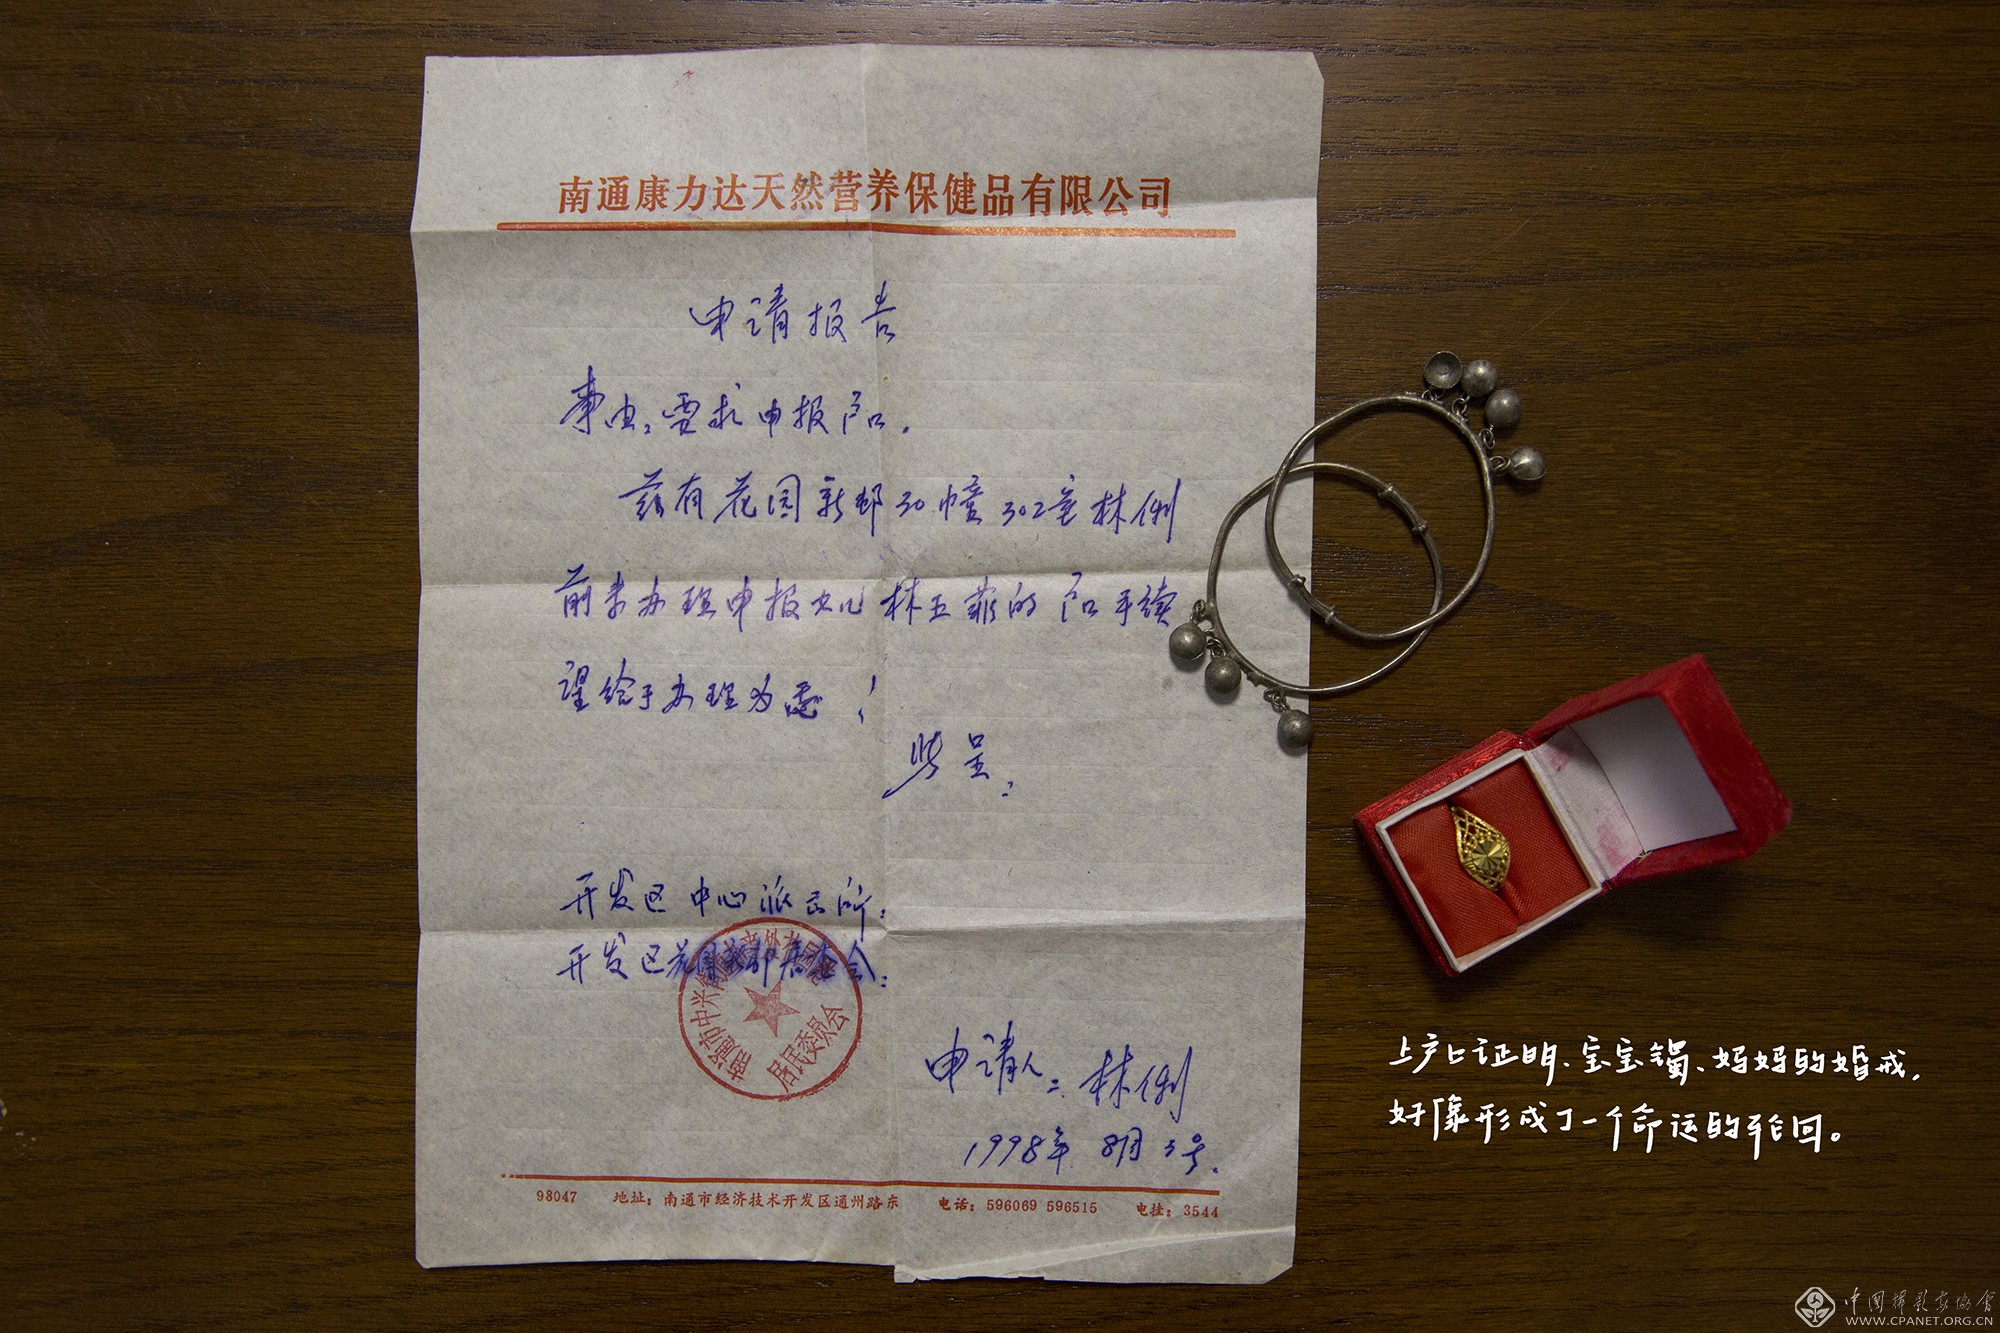 南通康力达天然营养保健品有限公司
申请报告
事由：要求申报户口.
兹有花园新邨30幢302室林俐
前来办理申报女儿林五菲的户口手续
望给于办理为感！
此呈.
开发区中心派出所：
开发区花园新邨居委会：
南通市中兴街道
居民委员会
申请人：林俐
1998年8月3号.
98047 地址：南通市经济技术开发区通州路东 电话：596069 596515 电挂：3544
上户口证明、宝宝镯、妈妈的婚戒，
好像形成了一个命运的轮回。
中国摄影家协会
WWW.CPANET.ORG.CN